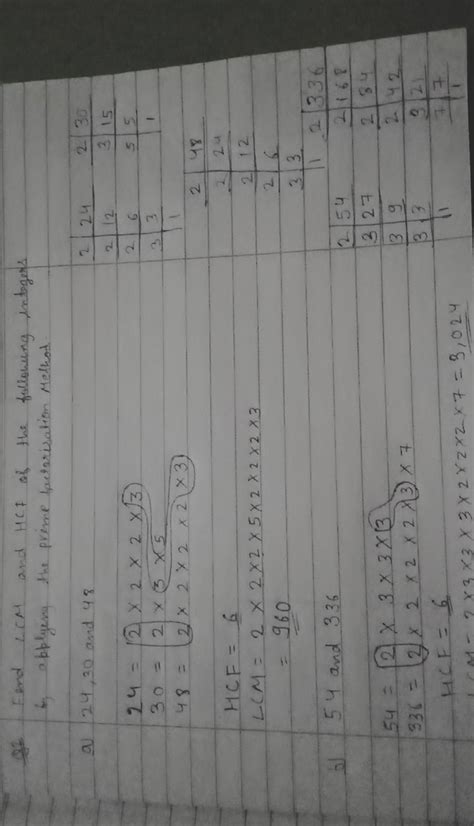 Q2 Find LCM and HCF of the following integers
by applying the prime factorisation Method
a) 24, 30 and 48
2 | 24
2 | 12
2 | 6
3 | 3
1
2 | 30
3 | 15
5 | 5
1
24 = 2 × 2 × 2 × 3
30 = 2 × 3 × 5
48 = 2 × 2 × 2 × 2 × 3
2 | 48
2 | 24
2 | 12
2 | 6
3 | 3
1
HCF = 6
LCM = 2 × 2 × 2 × 5 × 2 × 2 × 2 × 3
= 960
b) 54 and 336
2 | 54
3 | 27
3 | 9
3 | 3
1
2 | 336
2 | 168
2 | 84
2 | 42
3 | 21
7 | 7
1
54 = 2 × 3 × 3 × 3
336 = 2 × 2 × 2 × 2 × 3 × 7
HCF = 6
LCM = 2 × 3 × 3 × 3 × 2 × 2 × 2 × 7 = 3,024